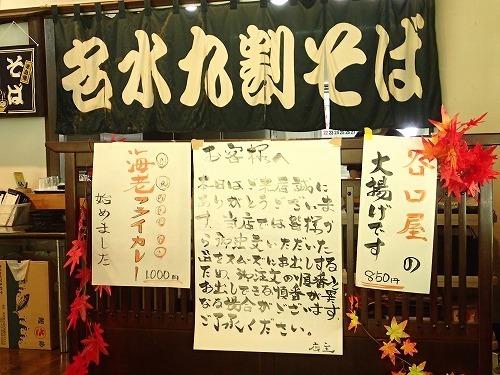 名水九割そば
そば
海老フライカレー
始めました
1000円
お客様へ
本日はご来店誠に
ありがとうございま
す。当店では皆様か
ら御注文いただいた
品をスムーズにお出しする
ため、御注文の順番と異
お出しできる順番が
なる場合がございます。
ご了承ください。
店主
谷口屋の
大揚げです
850円